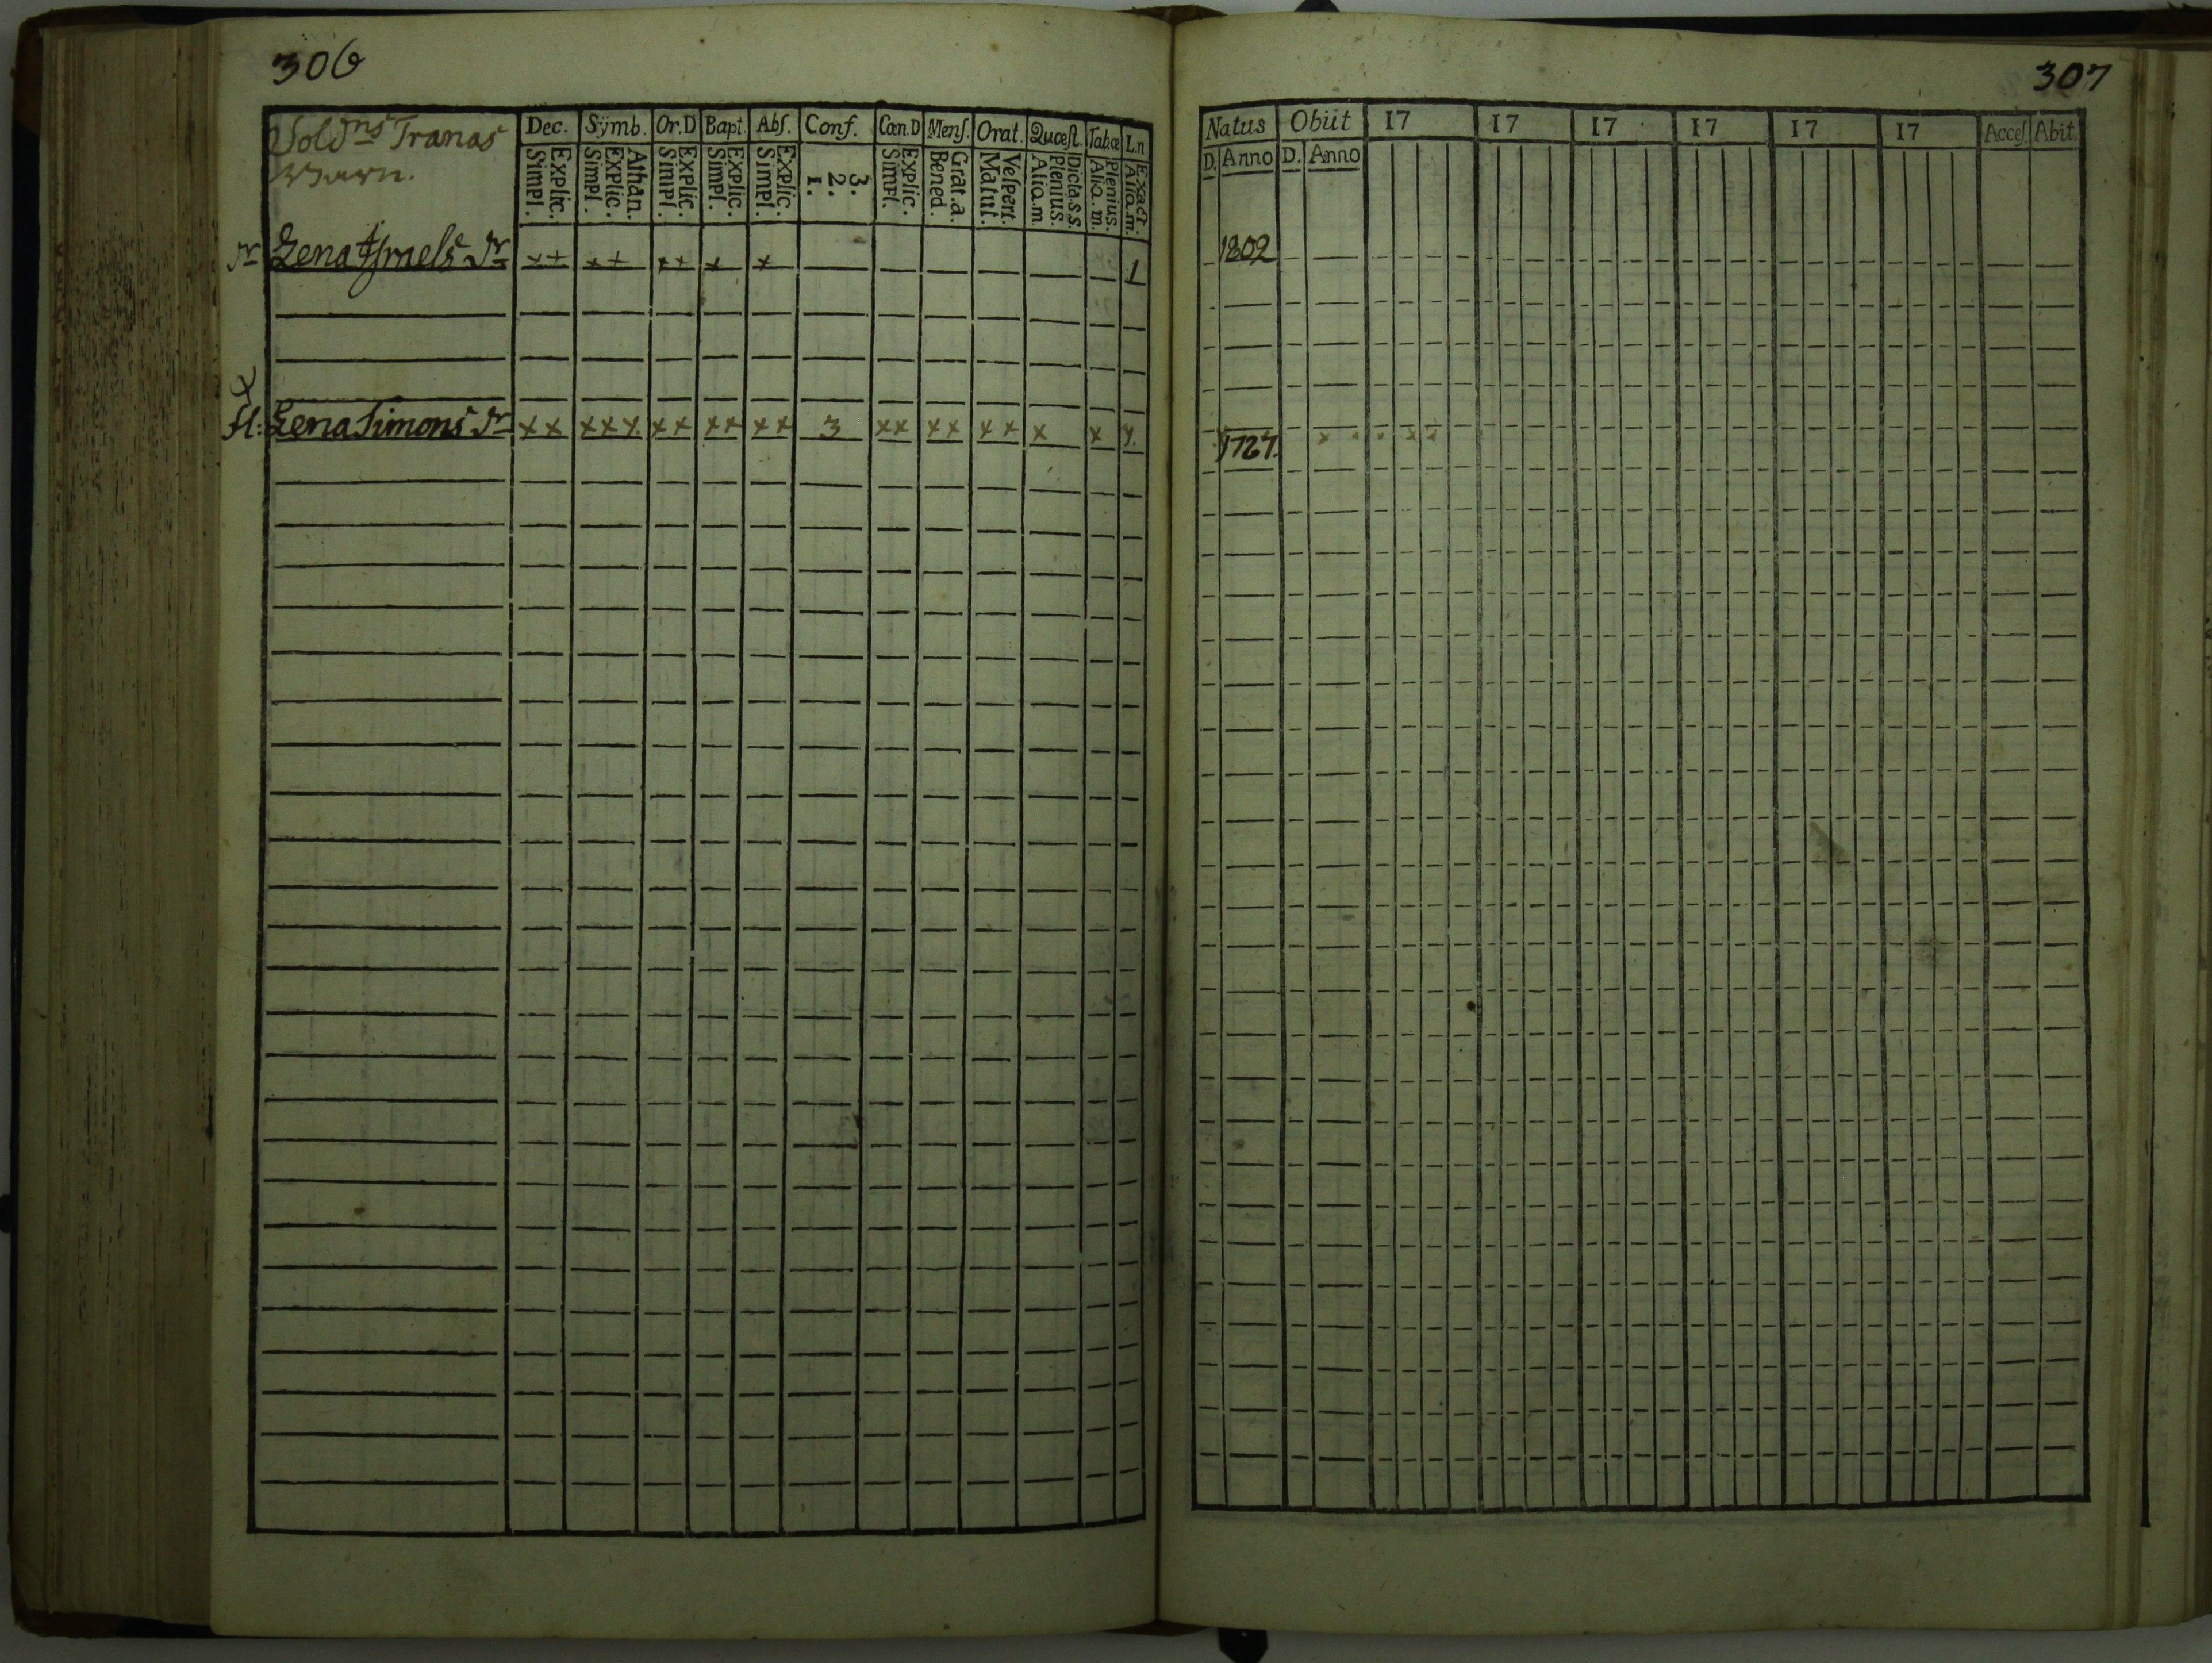 306
Sold:ns Tranas Dec. Symb. Or.D Bapt. Abſ. Conf. Cœn.D Menſ. Orat. Quœſt. Tab.œ L.n
Barn. Simpl. Explic. Simpl. Explic. Athan. Simpl. Explic. Simpl. Explic. Simpl. Explic. 1. 2. 3. Simpl. Explic. Bened. Grat.a. Matut. Veſpert. Aliq.m Plenius. Dicta.s.s. Aliq.m. Plenius. Aliq.m. Exact.
Dr Lena Iſraels Dr ×+ ×+ ×+ × × 1
H: Lena Simons Dr ×× ××× ×× ×× ×× 3 ×× ×× ×× × × ×
307
Natus Obiit 17 17 17 17 17 17 Acceſ. Abit.
D. Anno D. Anno
1802
1727.